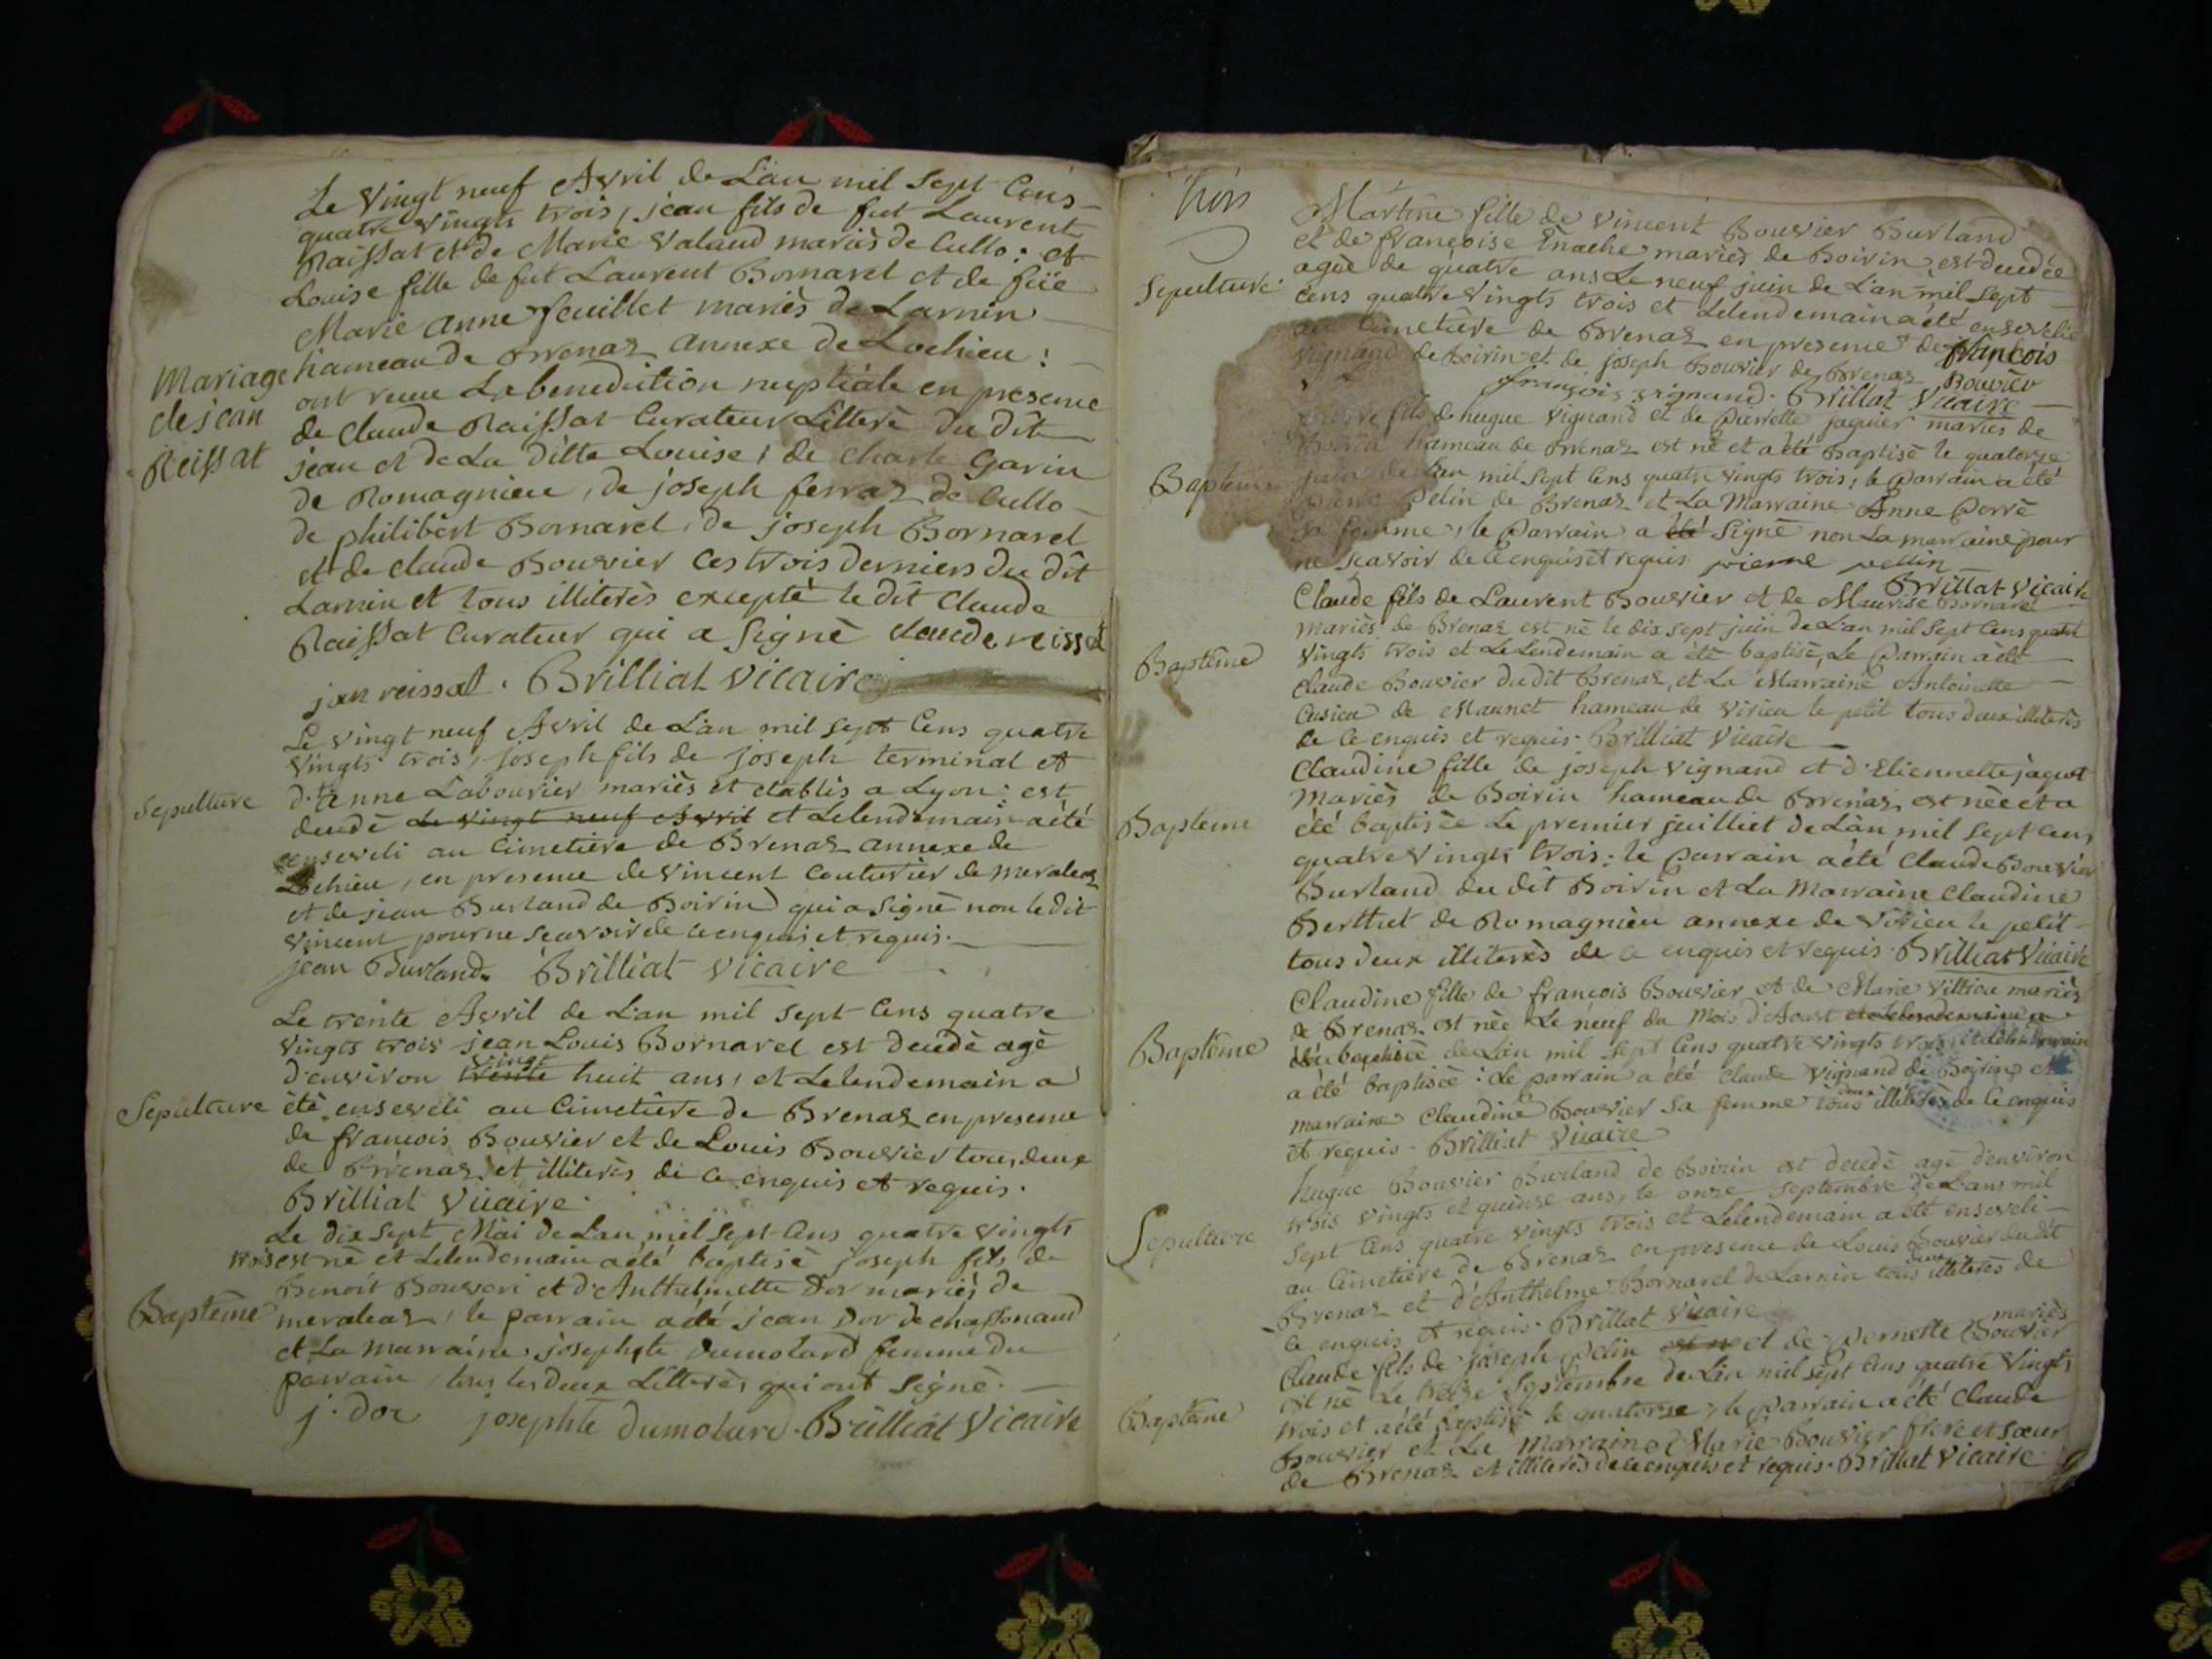 Le vingt neuf Avril de L'an mil sept Cens
quatre vingts trois, jean fils de fut Laurent
Raissat et de Marie Valaud mariès de Cullo: et
Louise fille de fut Laurent Bornarel et de füe
Marie anne feuillet mariès de Larnin
Mariage
de jean
Reissat
hameau de Brenaz annexe de Lochieu:
ont reçue La benediction nuptiale en presence
de claude Raissat Curateur Litterè du dit
jean et de La ditte Louise, de charle Garin
de Romagnieu, de joseph ferraz de Cullo
de philibert Bornarel, de joseph Bornarel
et de claude Bouvier ces trois derniers du dit
Larnin et tous illiterès exceptè le dit claude
Raissat Curateur qui a Signè claude reissat
jan reissat. Brilliat vicaire
Sepulture
Le vingt neuf Avril de L'an mil sept Cens quatre
vingts trois, joseph fils de joseph terminal et
d'anne Labouvier mariès et etablis a Lyon: est
decedè le vingt neuf Avril et Lelendemain a été
enseveli au Cimetière de Brenaz annexe de
Lochieu, en presence de vincent Couturier de meraleaz
et de jean Burland de Boirin qui a signè non le dit
vincent pour ne sçavoir de ce enquis et requis.
jean Burland. Brilliat vicaire
Sepulture
Le trente Avril de L'an mil sept Cens quatre
vingts trois jean Louis Bornarel est decedè agè
d'environ trente vingt huit ans, et Lelendemain a
étè enseveli au Cimetière de Brenaz en presence
de francois Bouvier et de Louis Bouvier tous deux
de Brenaz et illiterès de ce enquis et requis.
Brilliat Vicaire.
Baptême
Le dix sept Mai de L'an mil sept Cens quatre vingts
trois est nè et Lelendemain a été baptisè joseph fils de
Benoit Bouveri et d'Anthelmette Dor mariès de
meraleaz, le parrain a été jean Dor de chassonaud
et La marraine, josephte Dumolard femme du
parrain, tous les deux Litterès qui ont signè.
j. dor josephte dumolard. Brilliat Vicaire
trois
Sepulture
Martine fille de vincent Bouvier Burland
et de françoise Enache mariès de Boirin, est decedée
agèe de quatre ans Le neuf juin de L'an mil sept
cens quatre vingts trois et Lelendemain a été ensevelie
au Cimetière de Brenaz en presence de françois
vignand de Boirin et de joseph Bouvier de Brenaz Bouvier
françois vignand. Brillat Vicaire
Baptême
pierre fils de hugue vignand et de Pierrette jaquier mariès de
Boirin hameau de Brenaz est nè et a été Baptisè le quatorze
juin de L'an mil sept Cens quatre vingts trois; le Parrain a été
pierre Pelin de Brenaz et La Marraine Anne Perrè
sa femme, le Parrain a été Signè non La marraine pour
ne sçavoir de ce enquis et requis pierre pellin
Brillat Vicaire
Baptême
Claude fils de Laurent Bouvier et de Maurise Bornarel
mariès de Brenaz est nè le dix sept juin de L'an mil sept Cens quatre
vingts trois et LeLendemain a étè baptisè, Le Parrain a été
claude Bouvier du dit Brenaz, et La Marraine Antoinette
Cusieu de Maunet hameau de Virieu le petit tous deux illiterès
de ce enquis et requis. Brilliat Vicaire
Bapteme
Claudine fille de joseph vignand et d'Etiennette jaquet
Mariès de Boirin hameau de Brenaz, est nèe et a
été baptisèe Le premier juilliet de L'an mil sept cens
quatre vingts trois: le Parrain a été Claude Bouvier
Burland du dit Boirin et La Marraine Claudine
Berthet de Romagnieu annexe de Virieu le petit
tous deux illiterès de ce enquis et requis. Brilliat Vicaire
Baptême
Claudine fille de françois Bouvier et de Marie Villieu mariès
de Brenaz est nèe Le neuf du mois d'Aoust et Lelendemain a
été baptisèe de L'an mil sept Cens quatre vingts trois et Lelendemain
a été baptisèe: Le parrain a été claude Vignand de Boirin, et
marraine Claudine Bouvier sa femme tous deux illiterès de ce enquis
et requis. Brilliat Vicaire
Sepulture
hugue Bouvier Burland de Boirin est decedè agè d'environ
trois vingts et quinze ans, le onze septembre de L'an mil
sept Cens quatre vingts trois et Lelendemain a été enseveli
au Cimetiere de Brenaz en presence de Louis Bouvier du dit
Brenaz et d'Anthelme Bornarel de Larnin tous deux illiterès de
ce enquis et requis. Brillat Vicaire
Baptême
Claude fils de joseph Pelin est nè et de Pernette Bouvier mariès
est nè Le treize Septembre de L'an mil sept Cens quatre Vingts
trois et a été baptisè le quatorze, le Parrain a été Claude
Bouvier et La Marraine Marie Bouvier frere et sœur
de Brenaz et illiterès de ce enquis et requis. Brillat Vicaire.